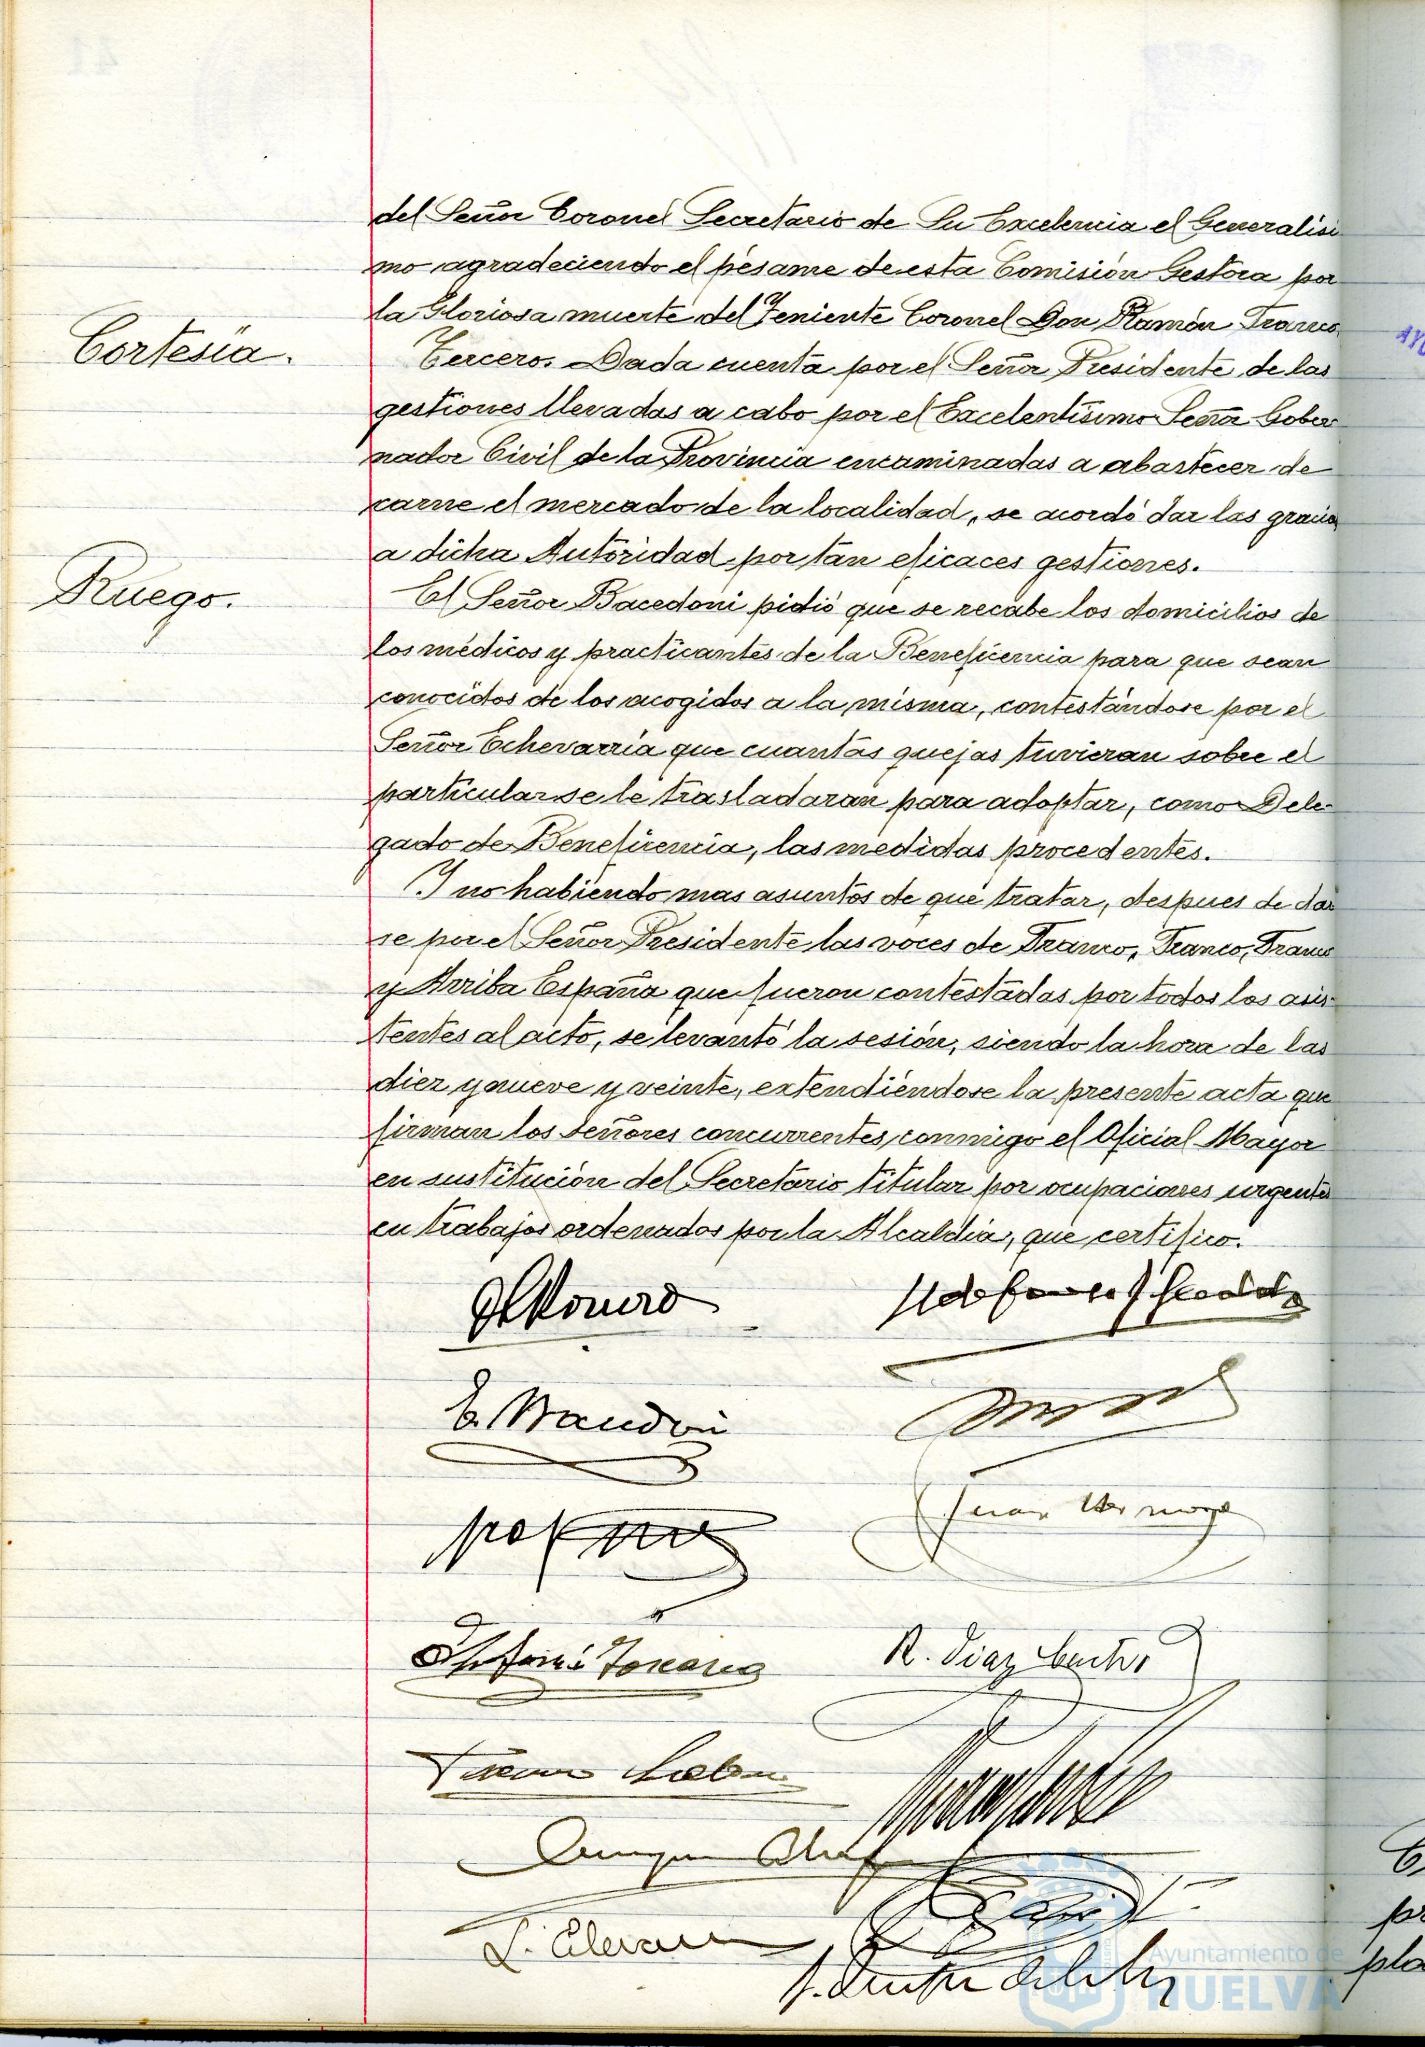 del Señor Coronel Secretario de Su Excelencia el Generalísi
mo agradeciendo el pésame de esta Comisión Gestora por
la Gloriosa muerte del Teniente Coronel Don Ramón Franco.
Cortesía.
Tercero. Dada cuenta por el Señor Presidente de las
gestiones llevadas a cabo por el Excelentísimo Señor Gober
nador Civil de la Provincia encaminadas a abastecer de
carne el mercado de la localidad, se acordó dar las gracias
a dicha Autoridad por tan eficaces gestiones.
Ruego.
El Señor Bacedoni pidió que se recabe los domicilios de
los médicos y practicantes de la Beneficencia para que sean
conocidos de los acogidos a la misma, contestándose por el
Señor Echevarría que cuantas quejas tuvieran sobre el
particular se le trasladaran para adoptar, como Dele
gado de Beneficencia, las medidas procedentes.
Y no habiendo mas asuntos de que tratar, despues de dar
se por el Señor Presidente las voces de Franco, Franco, Franco
y Arriba España que fueron contestadas por todos los asis
tentes al acto, se levantó la sesión, siendo la hora de las
diez y nueve y veinte, extendiéndose la presente acta que
firman los señores concurrentes, conmigo el Oficial Mayor
en sustitución del Secretario titular por ocupaciones urgentes
en trabajos ordenados por la Alcaldía, que certifico.
Romero
R. Diaz
Ayuntamiento de
HUELVA